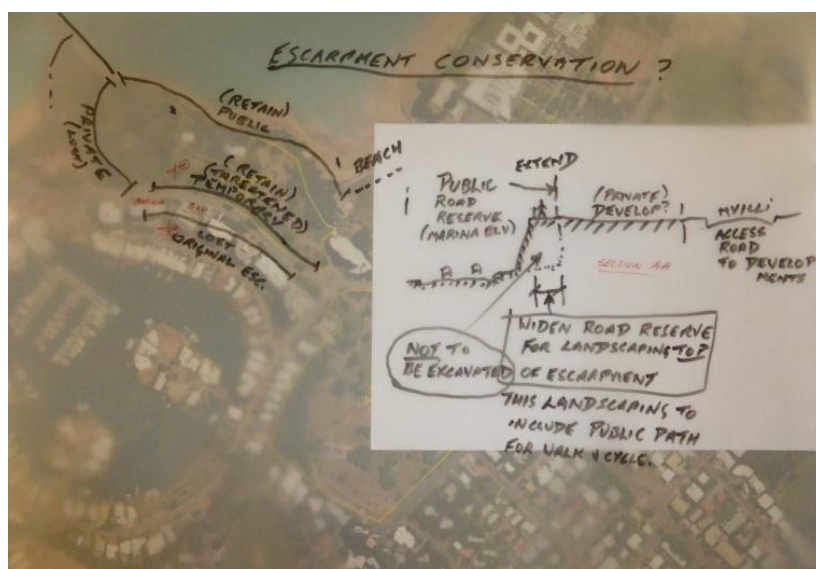 ESCARPMENT CONSERVATION ?
(RETAIN)
PUBLIC
PRIVATE
(LOST)
BEACH
(RETAIN)
(THREATENED)
TEMPORARY
LOST
ORIGINAL ESC.
MARINA
EXTEND
PUBLIC
ROAD
RESERVE
(MARINA BLV)
(PRIVATE)
DEVELOP?
MYILLI
ACCESS
ROAD
TO DEVELOP
MENTS
SECTION AA
NOT TO
BE EXCAVATED
WIDEN ROAD RESERVE
FOR LANDSCAPING TOP
OF ESCARPMENT
THIS LANDSCAPING TO
INCLUDE PUBLIC PATH
FOR WALK & CYCLE.